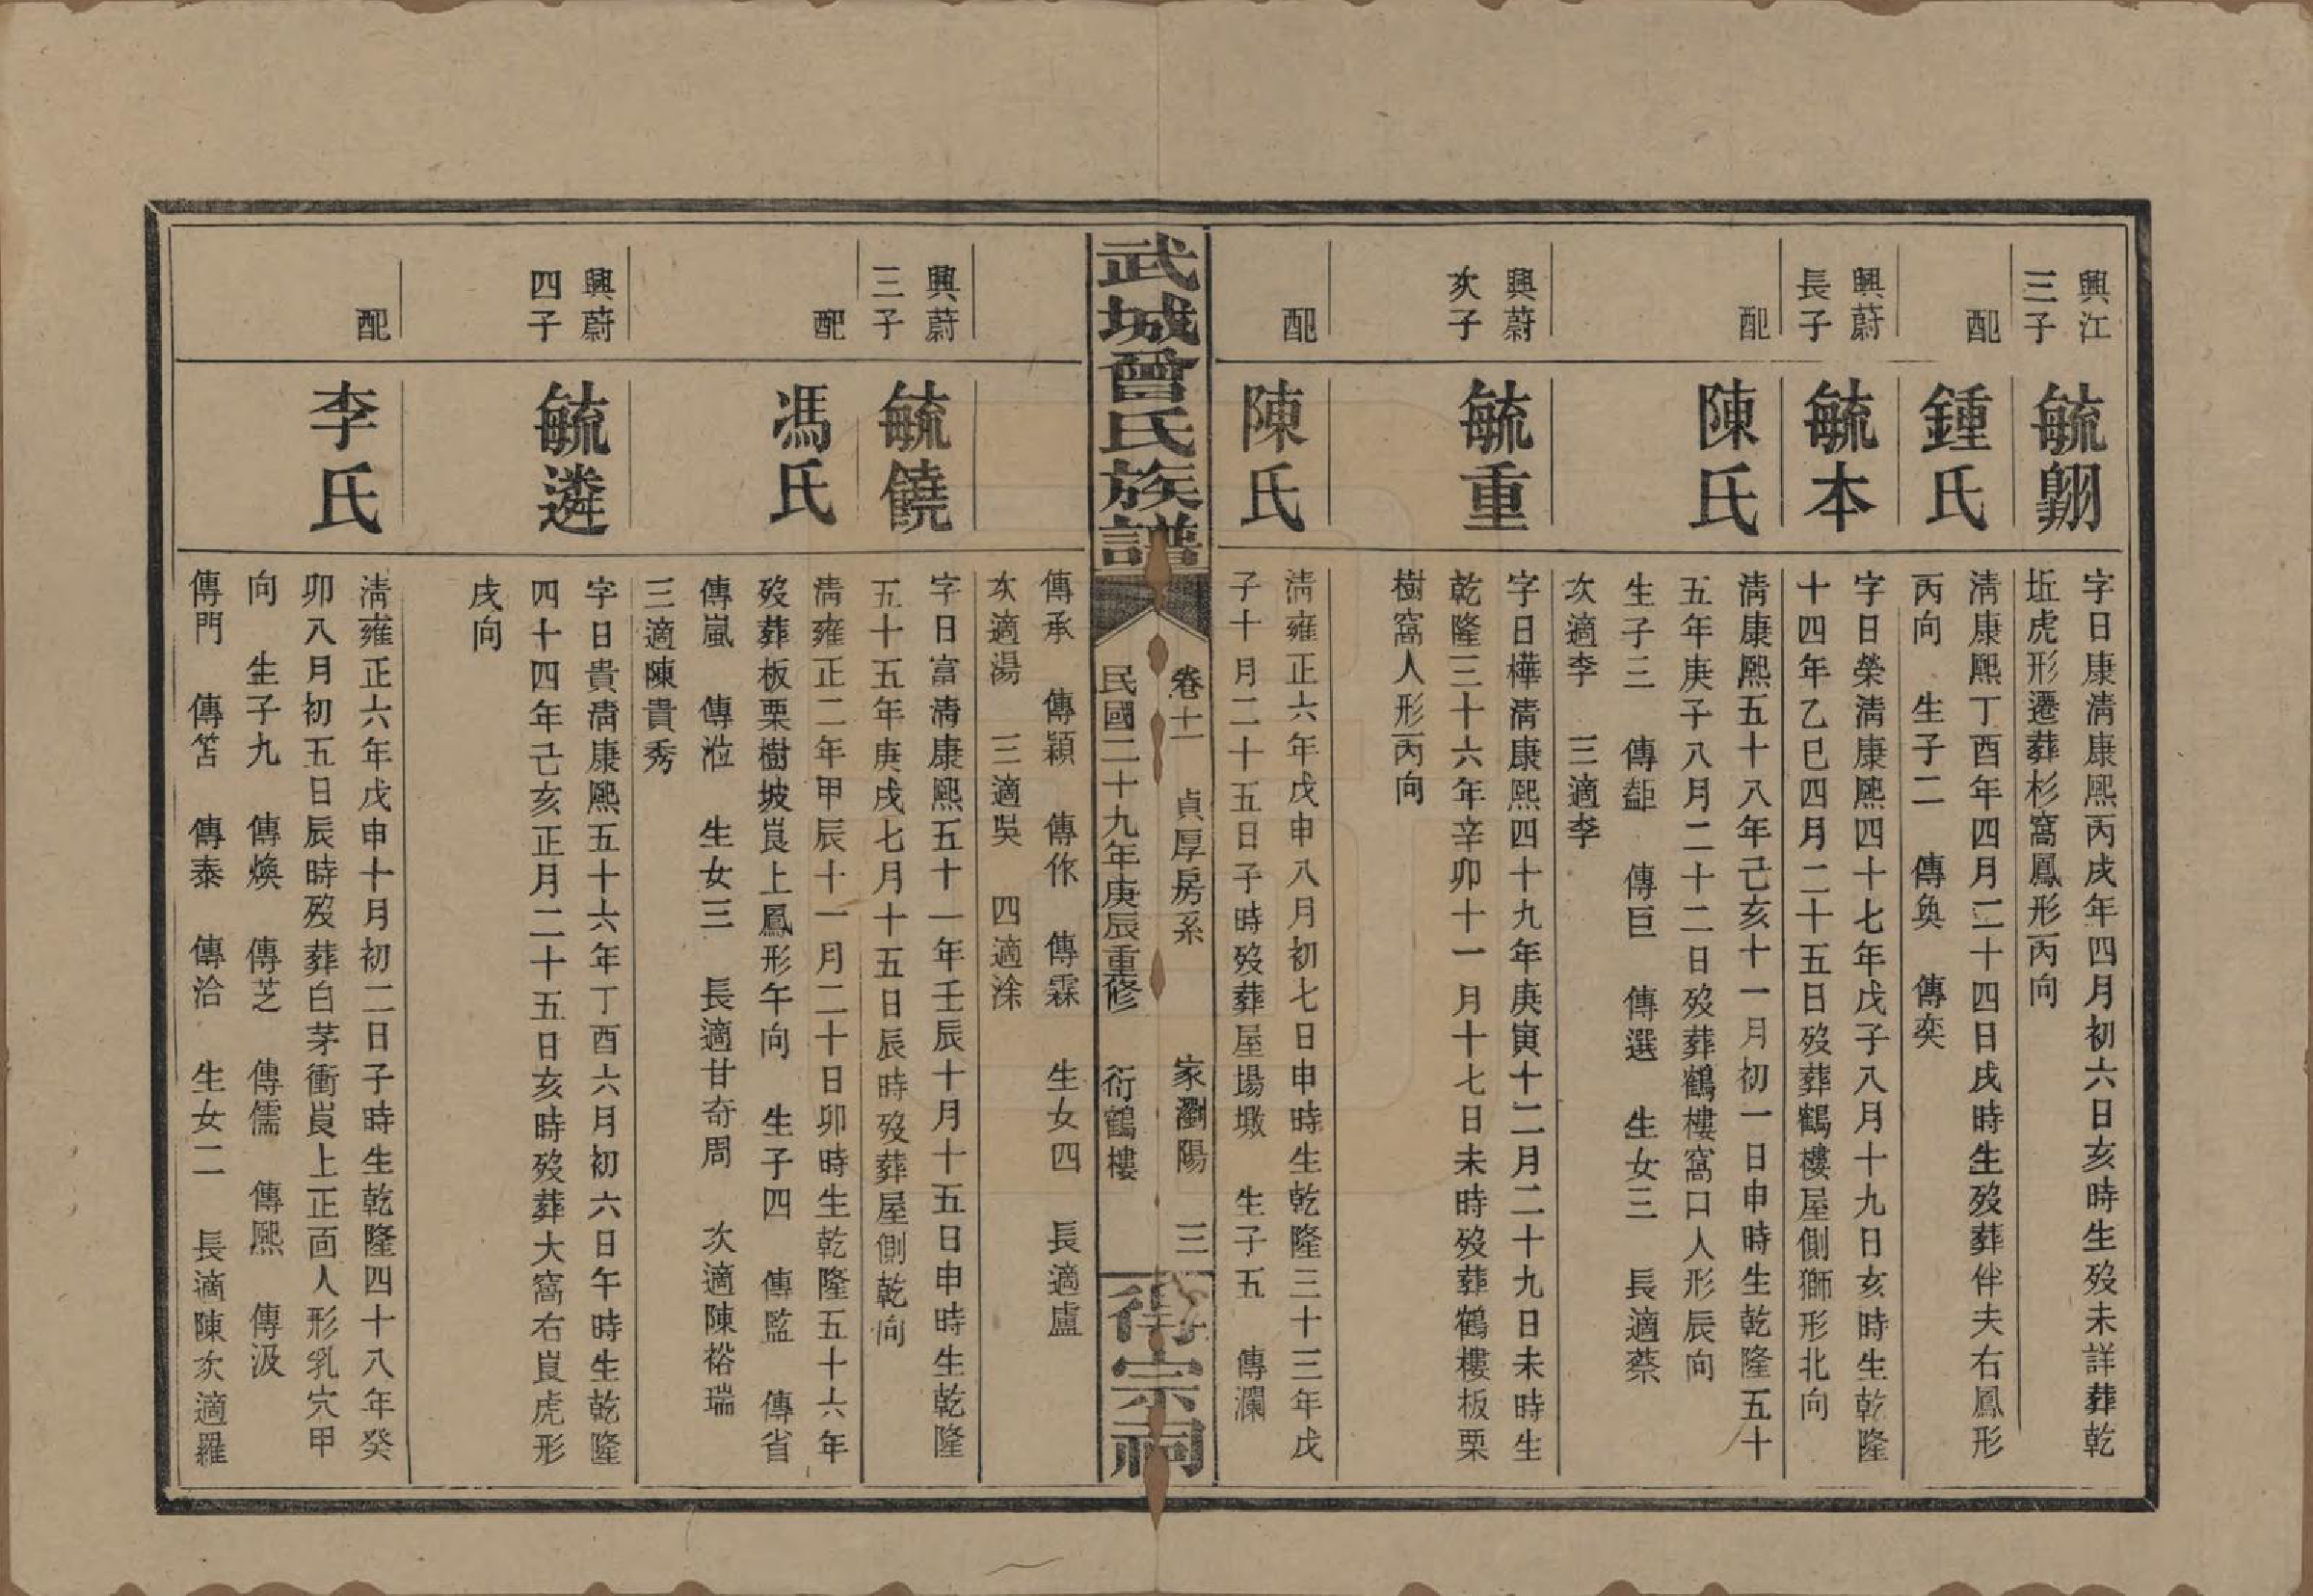 興江
三子
毓翺
字日康清康熙丙戌年四月初六日亥時生歿未詳葬乾
坵虎形遷葬杉窩鳳形丙向
配
鍾氏
清康熙丁酉年四月二十四日戌時生歿葬伴夫右鳳形
丙向 生子二 傳奐 傳奕
興蔚
長子
毓本
字日榮清康熙四十七年戊子八月十九日亥時生乾隆
十四年乙巳四月二十五日歿葬鶴樓屋側獅形北向
配
陳氏
清康熙五十八年己亥十一月初一日申時生乾隆五十
五年庚子八月二十二日歿葬鶴樓窩口人形辰向
生子三 傳 傳巨 傳選 生女三 長適蔡
次適李 三適李
興蔚
次子
毓重
字日樺清康熙四十九年庚寅十二月二十九日未時生
乾隆三十六年辛卯十一月十七日未時歿葬鶴樓板栗
樹窩人形丙向
配
陳氏
清雍正六年戊申八月初七日申時生乾隆三十三年戊
子十月二十五日子時歿葬屋場墩 生子五 傳瀾
武城曾氏族譜
卷十一 貞厚房系 家瀏陽 三
民國二十九年庚辰重修 衍鶴樓
衍宗祠
傳承 傳穎 傳作 傳霖 生女四 長適盧
次適湯 三適吳 四適涂
興蔚
三子
毓饒
字日富清康熙五十一年壬辰十月十五日申時生乾隆
五十五年庚戌七月十五日辰時歿葬屋側乾向
配
馮氏
清雍正二年甲辰十一月二十日卯時生乾隆五十六年
歿葬板栗樹坡崀上鳳形午向 生子四 傳監 傳省
傳嵐 傳涖 生女三 長適甘奇周 次適陳裕瑞
三適陳貴秀
興蔚
四子
毓遴
字日貴清康熙五十六年丁酉六月初六日午時生乾隆
四十四年己亥正月二十五日亥時歿葬大窩右崀虎形
戌向
配
李氏
清雍正六年戊申十月初二日子時生乾隆四十八年癸
卯八月初五日辰時歿葬白茅衝崀上正面人形乳穴甲
向 生子九 傳煥 傳芝 傳儒 傳熙 傳汲
傳門 傳笘 傳泰 傳洽 生女二 長適陳次適羅